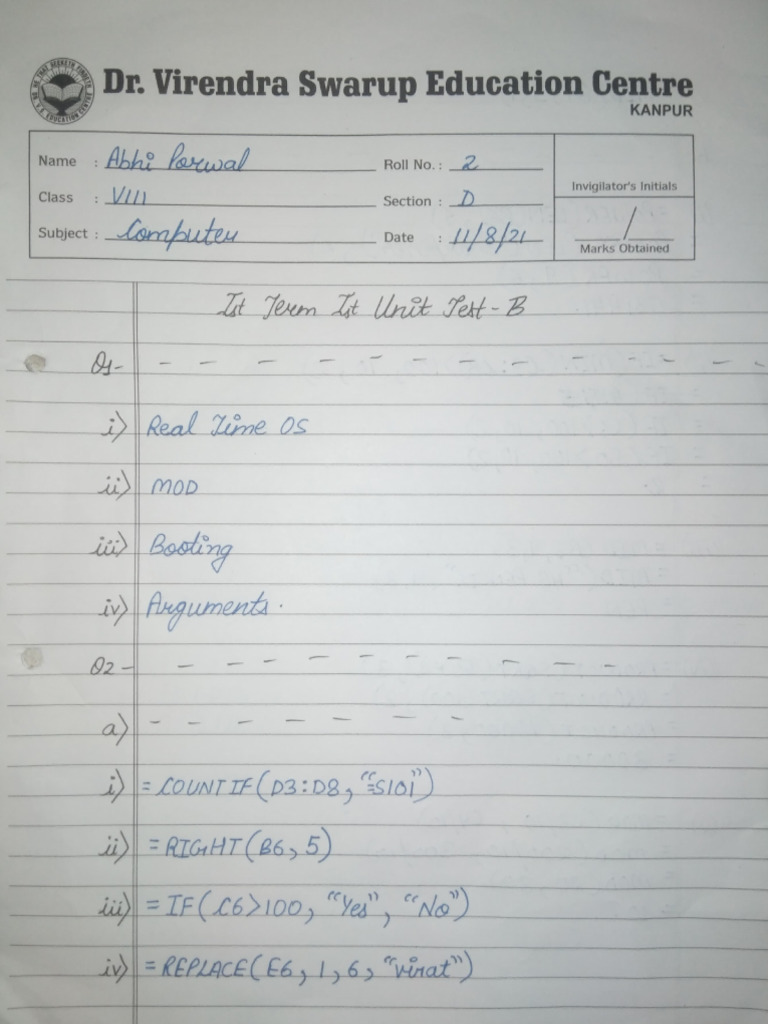 Dr. Virendra Swarup Education Centre
KANPUR
Name : Abhi Porwal
Roll No. : 2
Invigilator's Initials
Class : VIII
Section : D
Subject : Computer
Date : 11/8/21
Marks Obtained
Ist Term Ist Unit Test - B
Q1 -
i) Real Time OS
ii) MOD
iii) Booting
iv) Arguments.
Q2 -
a)
i) = COUNTIF(D3:D8, "=S101")
ii) = RIGHT(B6, 5)
iii) = IF(C6>100, "Yes", "No")
iv) = REPLACE(E6, 1, 6, "Virat")